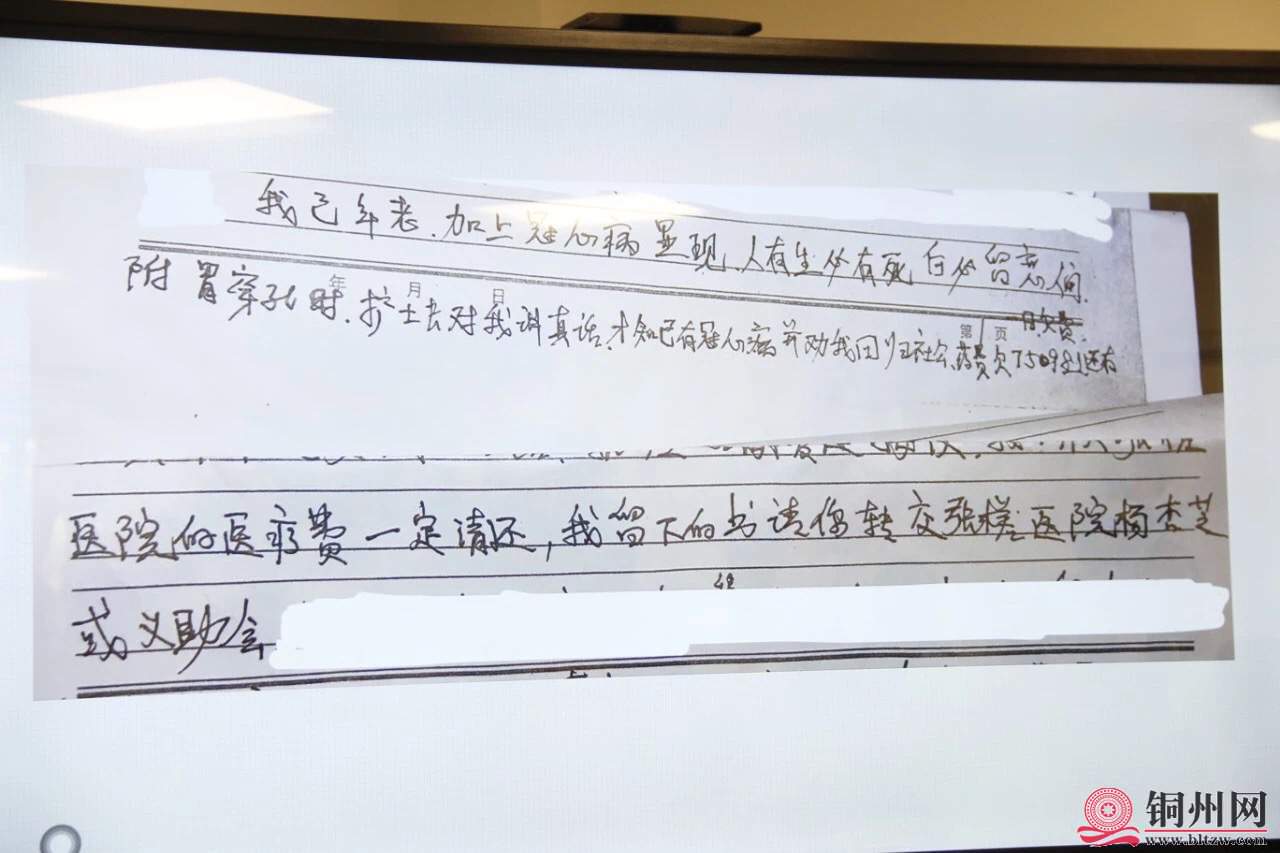 我已年老.加上冠心病显现.人有生必有死
附胃穿孔时.护士长对我讲真话.才知已有冠心病并劝我回归社会.药费欠7509到还有
年 月 日
第 页
月欠费.
医院的医疗费一定请还,我留下的书请你转交张槎医院杨杏芝
或义助会
铜州网
www.bltzw.com